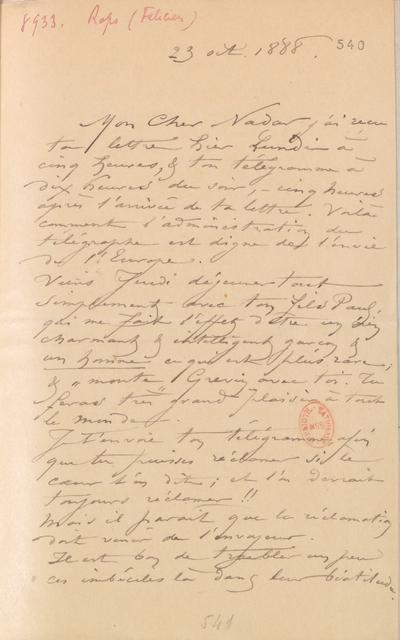 8933. Rops (Félicien)
23 oct. 1888. 540
Mon Cher Nadar j'ai reçu
ta lettre hier Lundi à
cinq heures, & ton télégramme à
dix heures du soir, – cinq heures
après l'arrivée de ta lettre. Voilà
comment l'administration du
télégraphe est digne de l'envie
de l'Europe.
Viens Jeudi déjeuner tout
simplement avec ton fils Paul,
qui me fait l'effet d'être un bien
charmant & intelligent garçon &
un homme ce qui est plus rare;
& "monte" Grévin avec toi. Tu
feras très grand plaisir à tout
le monde.
Je t'envoie ton télégramme afin
que tu puisses réclamer si le
cœur t'en dit; et l'on devrait
toujours réclamer!!
Mais il paraît que la réclamation
doit venir de l'envoyeur.
Il est bon de troubler un peu
ces imbéciles là dans leur béatitude.
541